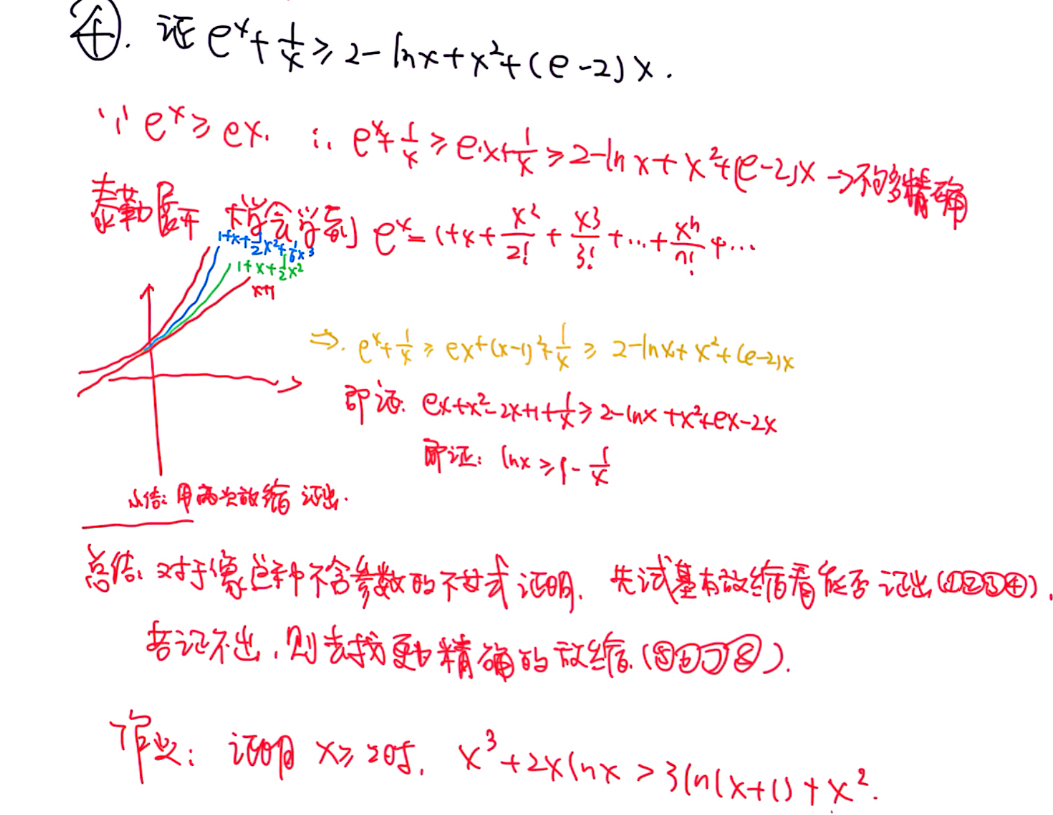 ④. 证 e^x + 1/x ≥ 2 - lnx + x² + (e-2)x.
∵ e^x ≥ ex. ∴ e^x + 1/x ≥ e·x + 1/x ≥ 2 - lnx + x² + (e-2)x → 不够精确
泰勒展开 大学会学到 e^x = 1 + x + x²/2! + x³/3! + … + x^n/n! + …
1+x+1/2x²+1/6x³
1+x+1/2x²
x+1
⇒. e^x + 1/x ≥ ex + (x-1)² + 1/x ≥ 2 - lnx + x² + (e-2)x
即证: ex + x² - 2x + 1 + 1/x ≥ 2 - lnx + x² + ex - 2x
即证: lnx ≥ 1 - 1/x
小结: 用两次放缩 证出.
总结: 对于像这种不含参数的不等式证明, 先试基本放缩看能否证出(①②③④),
若证不出, 则去找更加精确的放缩.(⑤⑥⑦⑧).
作业: 证明 x ≥ 2时, x³ + 2xlnx > 3ln(x+1) + x².